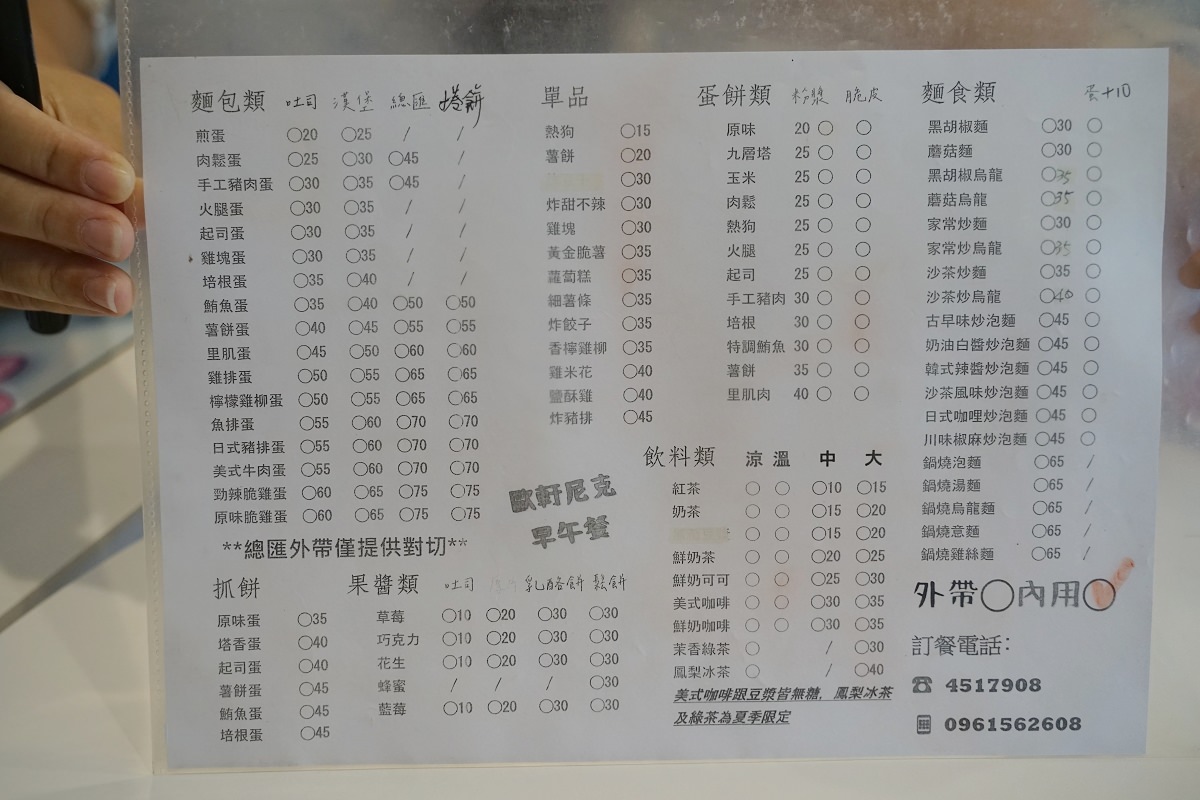 麵包類 吐司 漢堡 總匯 塔餅
煎蛋 ○20 ○25 / /
肉鬆蛋 ○25 ○30 ○45 /
手工豬肉蛋 ○30 ○35 ○45 /
火腿蛋 ○30 ○35 / /
起司蛋 ○30 ○35 / /
雞塊蛋 ○30 ○35 / /
培根蛋 ○35 ○40 / /
鮪魚蛋 ○35 ○40 ○50 ○50
薯餅蛋 ○40 ○45 ○55 ○55
里肌蛋 ○45 ○50 ○60 ○60
雞排蛋 ○50 ○55 ○65 ○65
檸檬雞柳蛋 ○50 ○55 ○65 ○65
魚排蛋 ○55 ○60 ○70 ○70
日式豬排蛋 ○55 ○60 ○70 ○70
美式牛肉蛋 ○55 ○60 ○70 ○70
勁辣脆雞蛋 ○60 ○65 ○75 ○75
原味脆雞蛋 ○60 ○65 ○75 ○75
**總匯外帶僅提供對切**
抓餅
原味蛋 ○35
塔香蛋 ○40
起司蛋 ○40
薯餅蛋 ○45
鮪魚蛋 ○45
培根蛋 ○45
果醬類 吐司 乳酪餅 鬆餅
草莓 ○10 ○20 ○30 ○30
巧克力 ○10 ○20 ○30 ○30
花生 ○10 ○20 ○30 ○30
蜂蜜 / / / ○30
藍莓 ○10 ○20 ○30 ○30
單品
熱狗 ○15
薯餅 ○20
○30
炸甜不辣 ○30
雞塊 ○30
黃金脆薯 ○35
蘿蔔糕 ○35
細薯條 ○35
炸餃子 ○35
香檸雞柳 ○35
雞米花 ○40
鹽酥雞 ○40
炸豬排 ○45
歐軒尼克
早午餐
蛋餅類 粉漿 脆皮
原味 20 ○ ○
九層塔 25 ○ ○
玉米 25 ○ ○
肉鬆 25 ○ ○
熱狗 25 ○ ○
火腿 25 ○ ○
起司 25 ○ ○
手工豬肉 30 ○ ○
培根 30 ○ ○
特調鮪魚 30 ○ ○
薯餅 35 ○ ○
里肌肉 40 ○ ○
飲料類 涼 溫 中 大
紅茶 ○ ○ ○10 ○15
奶茶 ○ ○ ○15 ○20
○ ○ ○15 ○20
鮮奶茶 ○ ○ ○20 ○25
鮮奶可可 ○ ○ ○25 ○30
美式咖啡 ○ ○ ○30 ○35
鮮奶咖啡 ○ ○ ○30 ○35
茉香綠茶 ○ / ○30
鳳梨冰茶 ○ / ○40
美式咖啡跟豆漿皆無糖，鳳梨冰茶
及綠茶為夏季限定
麵食類 蛋+10
黑胡椒麵 ○30 ○
蘑菇麵 ○30 ○
黑胡椒烏龍 ○35 ○
蘑菇烏龍 ○35 ○
家常炒麵 ○30 ○
家常炒烏龍 ○35 ○
沙茶炒麵 ○35 ○
沙茶炒烏龍 ○40 ○
古早味炒泡麵 ○45 ○
奶油白醬炒泡麵 ○45 ○
韓式辣醬炒泡麵 ○45 ○
沙茶風味炒泡麵 ○45 ○
日式咖哩炒泡麵 ○45 ○
川味椒麻炒泡麵 ○45 ○
鍋燒泡麵 ○65 /
鍋燒湯麵 ○65 /
鍋燒烏龍麵 ○65 /
鍋燒意麵 ○65 /
鍋燒雞絲麵 ○65 /
外帶○內用○
訂餐電話:
☎ 4517908
0961562608